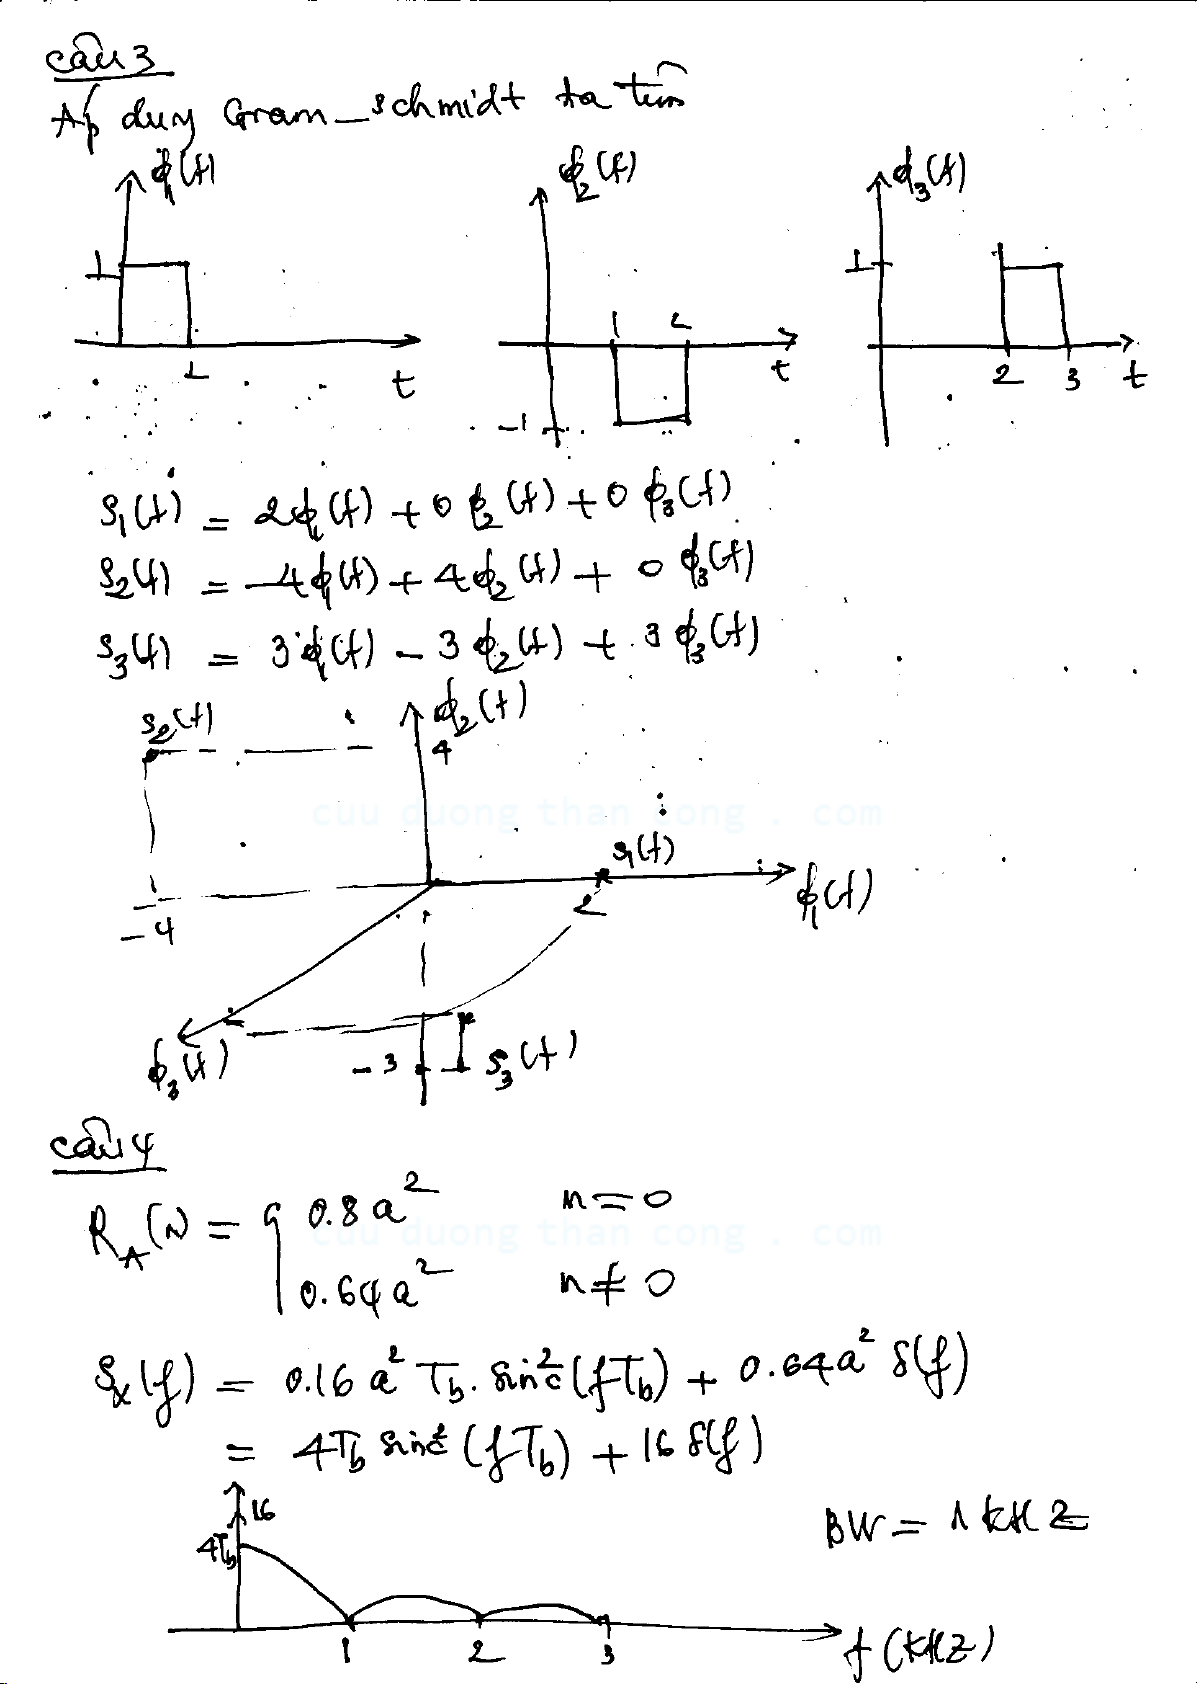 Câu 3
Áp dụng Gram_schmidt ta tìm
ϕ₁(t) ϕ₂(t) ϕ₃(t)
1 1 t
1 2 t -1
1 2 3 t
S₁(t) = 2ϕ₁(t) + 0 ϕ₂(t) + 0 ϕ₃(t)
S₂(t) = -4ϕ₁(t) + 4ϕ₂(t) + 0 ϕ₃(t)
S₃(t) = 3ϕ₁(t) - 3ϕ₂(t) + 3ϕ₃(t)
S₂(t) ϕ₂(t)
4
cuu duong than cong . com
S₁(t)
-4 2 ϕ₁(t)
ϕ₃(t) -3 S₃(t)
Câu 4
R_A(n) = { 0.8 a² n = 0
cuu duong than cong . com
0.64 a² n ≠ 0
Sₓ(f) = 0.16 a² T_b . sinc²(fT_b) + 0.64a² δ(f)
= 4T_b sinc²(fT_b) + 16 δ(f)
16 BW = 1 kHz
4T_b
1 2 3 f (kHz)